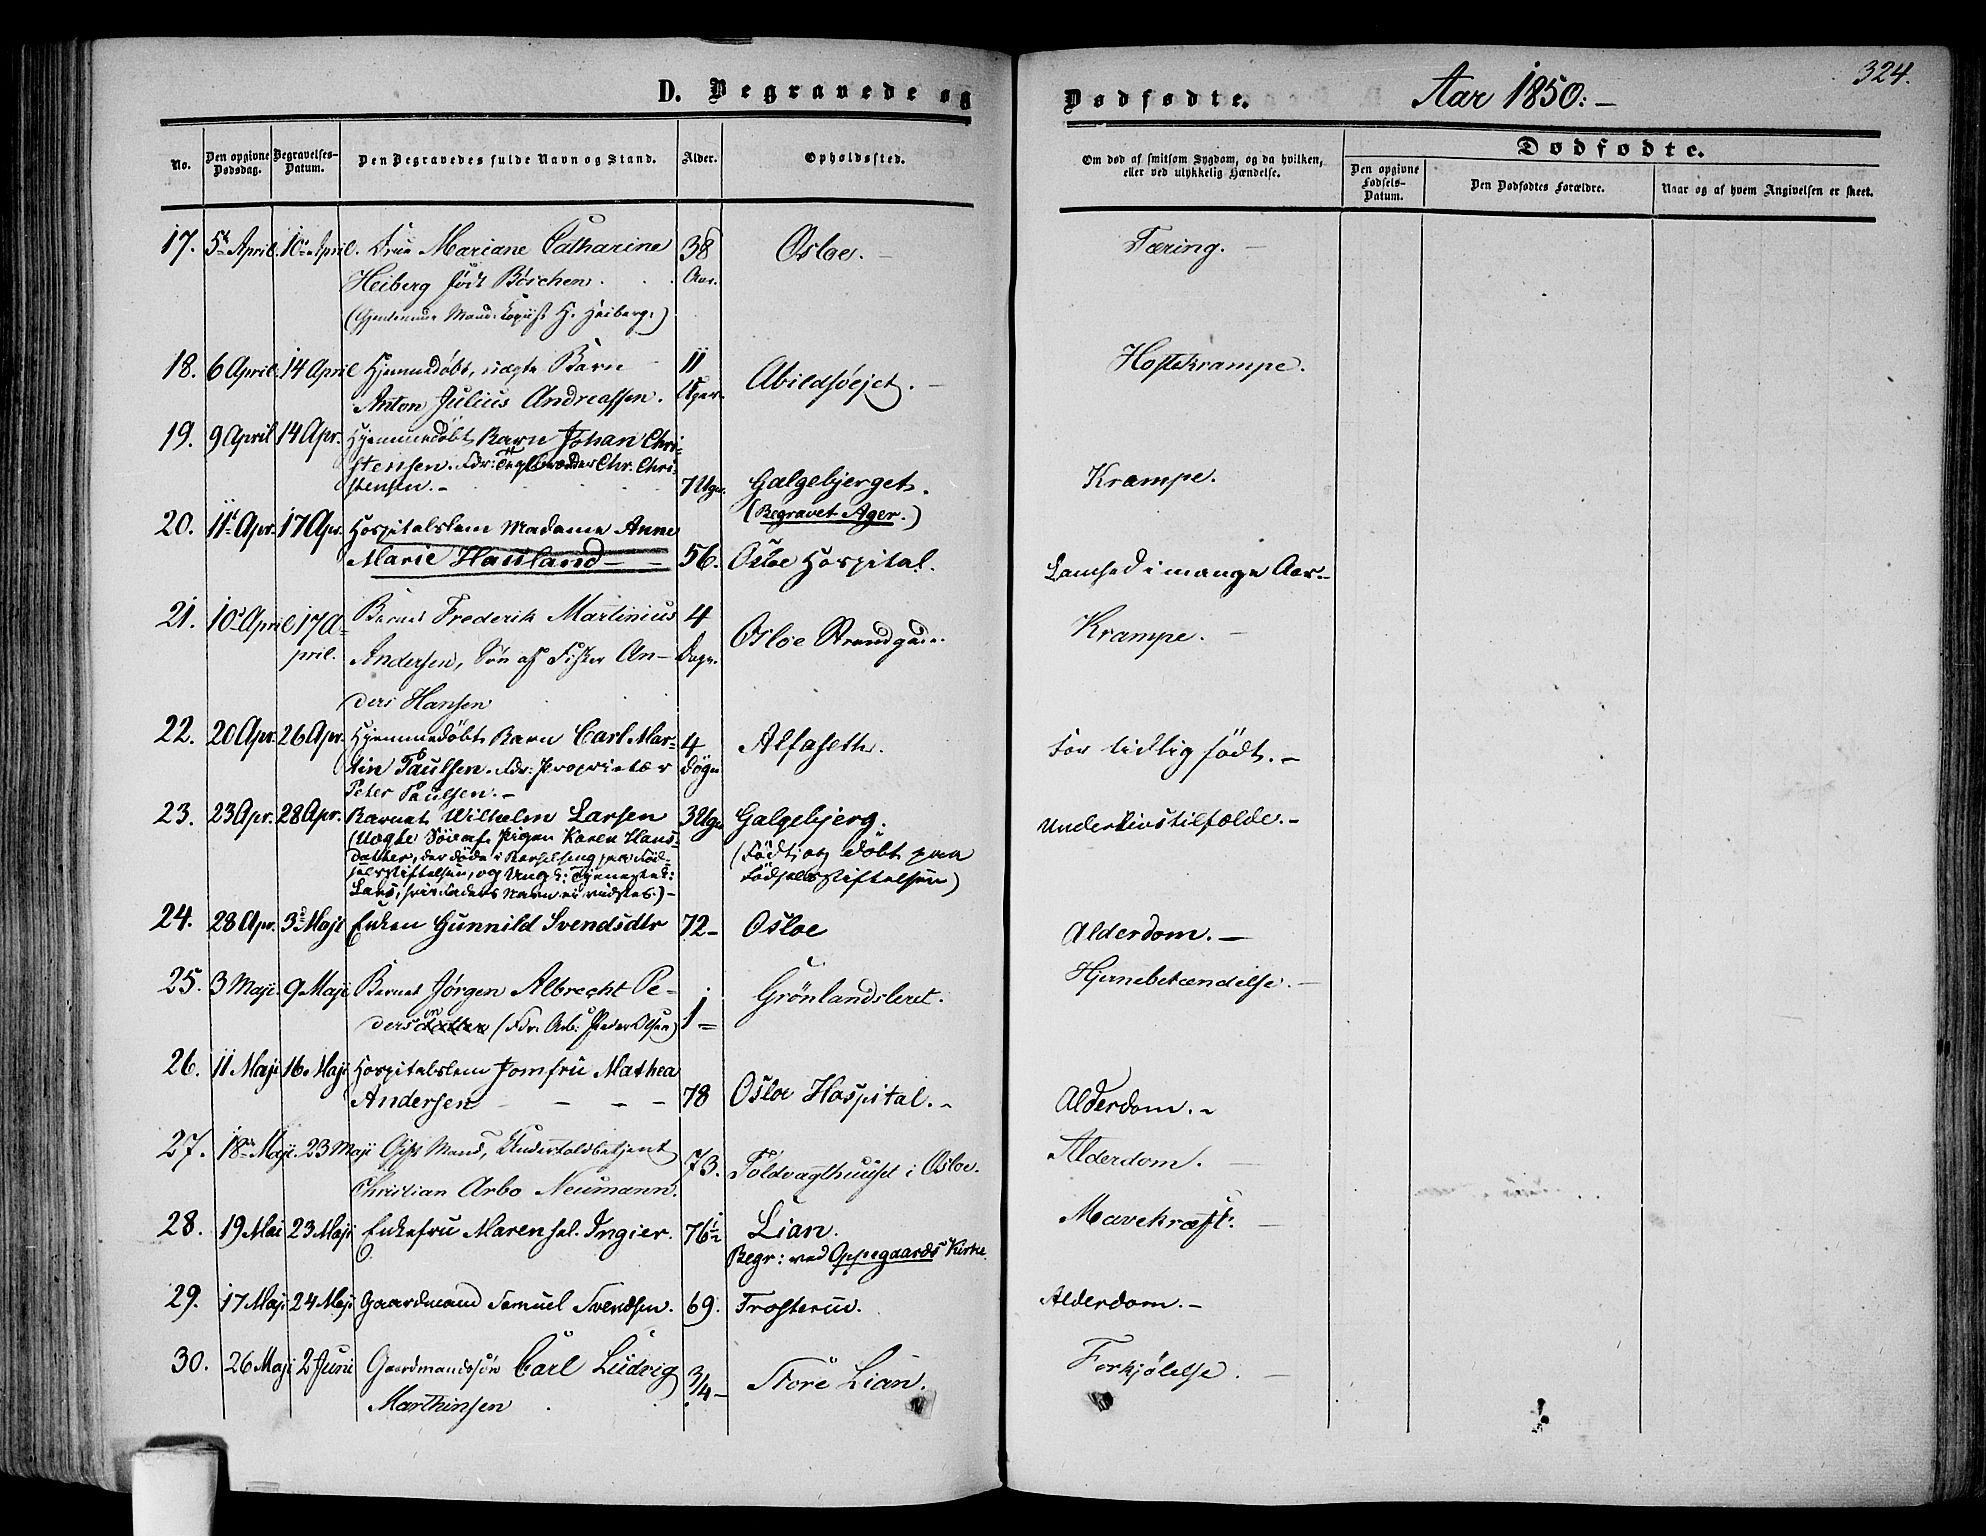 D. Begravede og Dødfødte. Aar 1850.- 324.
No. Den opgivne Dødsdag. Begravelses-Datum. Den Begravedes fulde Navn og Stand. Alder. Opholdssted.
Om død af smitsom Sygdom, og da hvilken, eller ved ulykkelig Hændelse.
Dødfødte.
Den opgivne Fødsels-Datum. Den Dødfødtes Forældre. Naar og af hvem Angivelsen er skeet.
17. 5te April. 10de April. Frue Mariane Catharine 38 Osloe. - Tæring. -
Heiberg født Böschen. Aar.
Mand: Copiist H. Heiberg.)
18. 6 April. 14 April Hjemmedøbt, uægte Barn 11 Abildsøejet. - Hostekrampe.
Anton Julius Andreassen. Uger.
19. 9 April 14 Apr. Hjemmedøbt Barn Johan Chri-
stensen. Fdr: Teglbrænder Chr. Chri-
stensen. - 7 Uger Galgebjerget. Krampe.
(Begravet Ager.)
20. 11te Apr. 17 Apr. Hospitalslem Madame Anne
Marie Hauland - - 56. Osloe Hospital. Lamhed i mange Aar.-
21. 10de April 17 A- Barnet Frederik Martinius 4 Osloe Strandgade. Krampe. -
pril. Andersen, Søn af Fisker An- Dage.
ders Hansen
22. 20 Apr. 26 Apr. Hjemmedøbt Barn Carl Mar- 4 Alfaseth. For tidlig født. -
tin Paulsen. Fdr: Proprietær Døgn
Peter Paulsen. -
23. 23 Apr. 28 Apr. Barnet Wilhelm Larsen 3 Uger Galgebjerg. Underlivstilfælde. -
(Uægte Søn af Pigen Karen Hans- (Født og døbt paa
datter, der døde i Barselseng paa Fød- Fødselsstiftelsen)
selsstiftelsen, og Ungk: Tjenestek:
Lars, hvis Faders Navn ei vidstes.) -
24. 28 Apr. 3de Maji Enken Gunnild Svendsdtr 72 - Osloe Alderdom. -
25. 3 Maji. 9 Maji Barnet Jørgen Albrecht Pe- 1 Grönlandsleret. Hjernebetændelse. -
dersen (Fdr. Arb: Peder Olsen) -
26. 11 Maji 16. Maji Hospitalslem Jomfru Mathea
Andersen - - - - 78 Osloe Hospital. - Alderdom. -
27. 18de Maji. 23 Maji Gift Mand, Undertoldbetjent 73. Toldvagthuuset i Osloe. Alderdom. -
Christian Arbo Neumann.
28. 19 Mai 23 Maji Enkefru Maren sal. Ingier. 76½ Lian. Mavekræft. -
Begr: ved Oppegaards Kirke.
29. 17 Maji 24 Maji Gaardmand Samuel Svendsen. 69. Trosterud. Alderdom. -
30. 26 Maji 2 Juni Gaardmandssøn Carl Ludvig 3/4 - Store Lian. Forkjølelse. -
Marthinsen